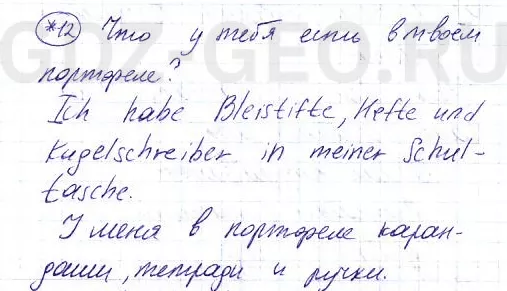 GDZ-GEO.RU
*12 Что у тебя есть в твоём
портфеле?
Ich habe Bleistifte, Hefte und
Kugelschreiber in meiner Schul-
tasche.
У меня в портфеле каран-
даши, тетради и ручки.